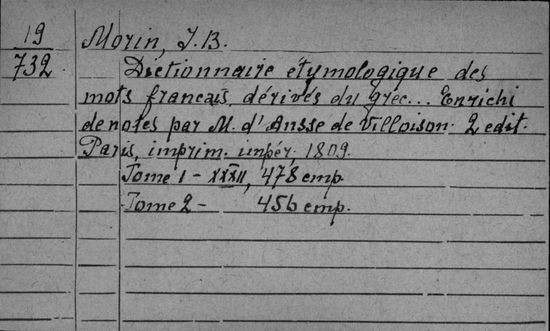 19
732
Morin, J.B.
Dictionnaire étymologique des
mots français, dérivés du grec... Enrichi
de notes par M. d'Ansse de Villoison. 2 edit.
Paris, imprim. impér. 1809.
Tome 1 - XXXII, 478 стр.
Tome 2 - 456 стр.